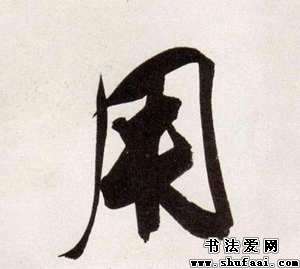 用
书法爱网
www.shufaai.com